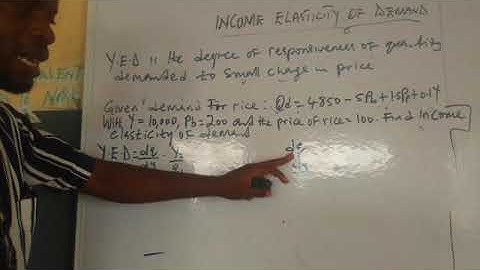 INCOME ELASTICITY OF DEMAND
Y.E.D is the degree of responsiveness of quantity
demanded to small change in price
Given demand for rice: Qd = 4850 - 5Pa + 1.5Pb + 0.1Y
With Y = 10,000, Pb = 200 and the price of rice = 100. Find Income
Elasticity of demand
Y.E.D = dq/dy · Y